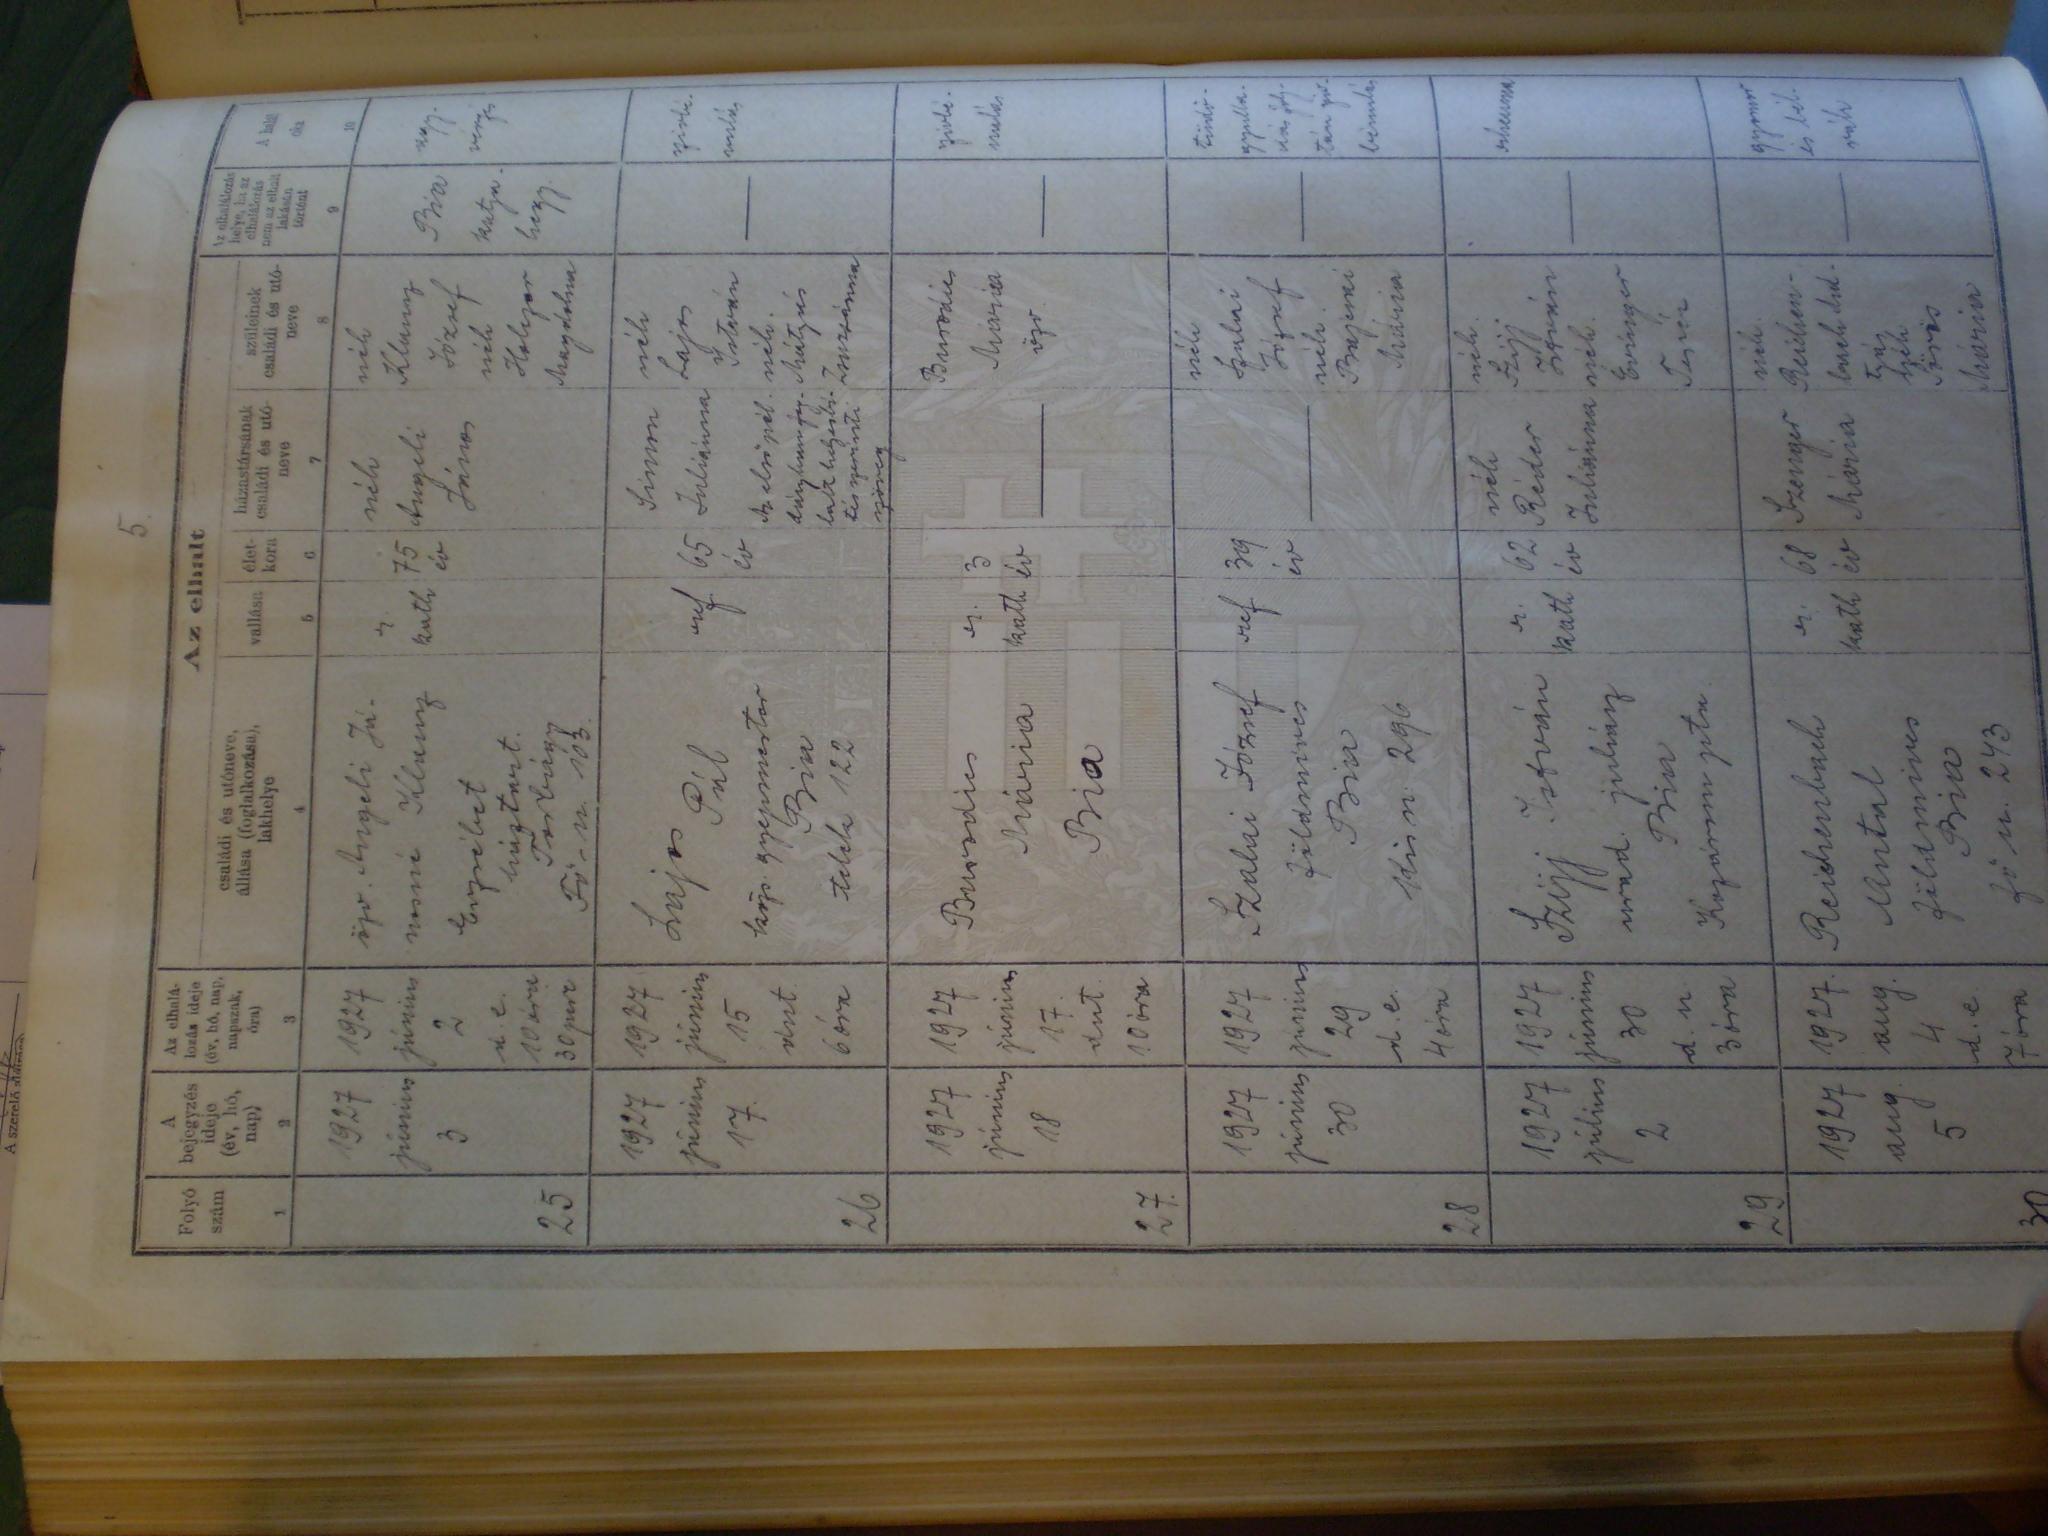 5.
Az elhalt
Folyó
szám
A
bejegyzés
ideje
(év, hó,
nap)
Az elhalá-
lozás ideje
(év, hó, nap,
napszak,
óra)
családi és utóneve,
állása (foglalkozása),
lakhelye
vallása
élet-
kora
házastársának
családi és utó-
neve
szüleinek
családi és utó-
neve
Az elhalálozás
helye, ha az
elhalálozás
nem az elhalt
lakásán
történt
A halál
oka
1
2
3
4
5
6
7
8
9
10
25
1927
június
3
1927
június
2
d. e.
10 óra
30 perc
özv. Angeli Já-
nosné Klausz
Erzsébet
háztart.
Torbágy
Fő u. 103.
r.
kath
75
év
néh
Angeli
János
néh
Klausz
József
néh
Holczer
Magdolna
Bia
Katya-
hegy.
agy-
vérzés
26
1927
június
17.
1927
június
15
dut.
6 óra
Lajos Pál
közs. gyepmester
Bia
telek 122
ref
65
év
Simon
Juliánna
néh
Lajos
István
néh.
Mátyás
Zsuzsánna
—
szívbé-
nulás
27.
1927
június
18
1927
június
17.
dut.
10 óra
Burodics
Mária
Bia
r.
kath
3
év
—
Burodics
Mária
özv.
—
szívbé-
nulás
28
1927
június
30
1927
június
29
d. e.
4 óra
Szalai József
földmíves
Bia
Kis u. 296
ref
39
év
—
néh
Szalai
József
néh.
Bajnai
Mária
—
tüdő-
gyulla-
dás foly-
tán szív-
bénulás
29
1927
július
2
1927
június
30
d. u.
3 óra
Szijj István
urad. juhász
Bia
Kozárom pta.
r.
kath
62
év
néh
Réder
Juliánna
néh.
Szijj
István
néh.
Teréz
—
30
1927
aug.
5
1927.
aug.
4
d. e.
7 óra
Reichenbach
Antal
földmíves
Bia
fő u. 243
r.
kath
68
év
Szenger
Mária
néh.
Reichen-
bach Má-
tyás
néh.
Mária
—
gyomor
és bél-
rák